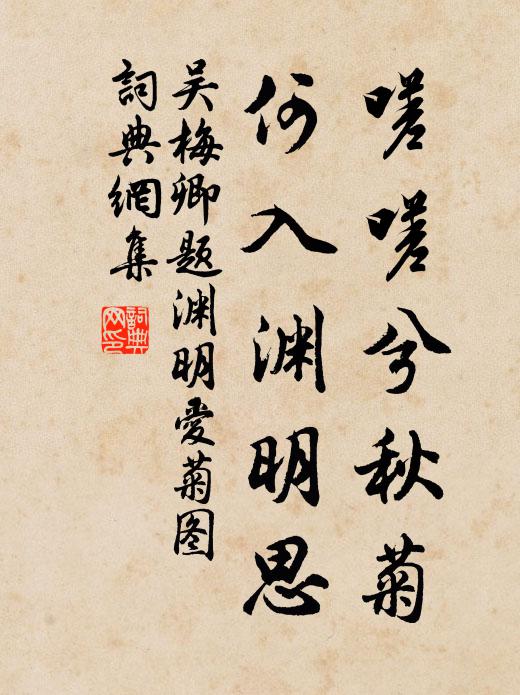 嗟嗟兮秋菊
何入渊明思
吴梅卿题渊明爱菊图
詞典網集
詞典网印